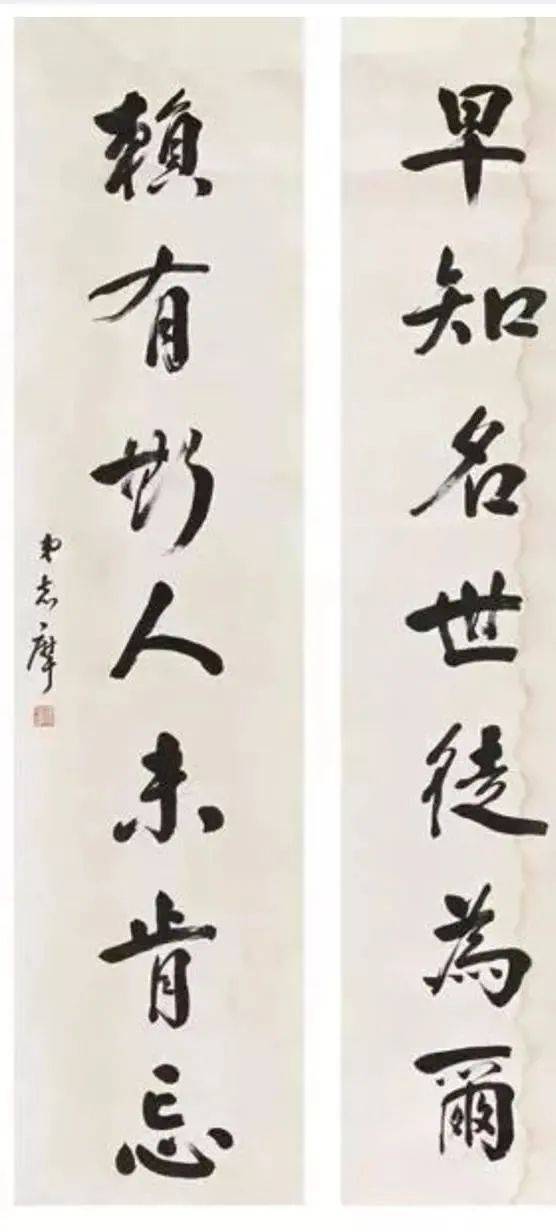 早知名世徒為爾
賴有斯人未肯忘
弟志摩